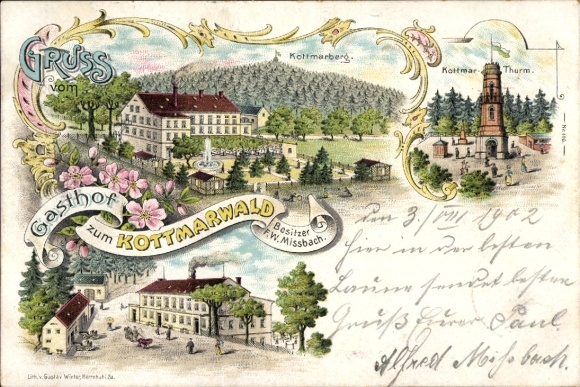 GRUSS
vom
Kottmarberg.
Kottmar-Thurm.
Gasthof
zum KOTTMARWALD
Besitzer
F. W. Missbach.
den 3./VIII 1902
Hier in der besten
Laune sendet besten
Gruß Eurer Paul
Alfred Missbach.
Lith. v. Gustav Winter, Herrnhut i. Sa.